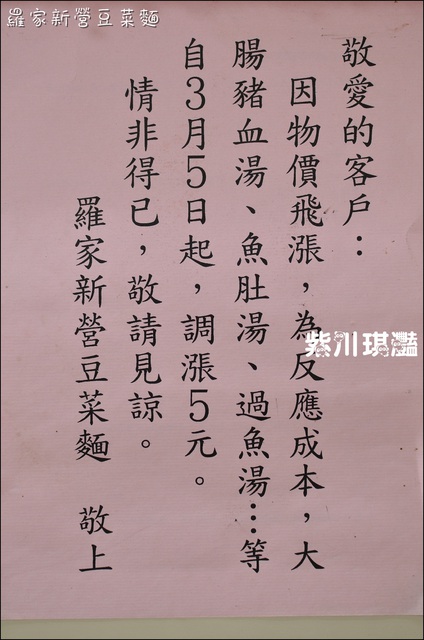 羅家新營豆菜麵
敬愛的客戶：
因物價飛漲，為反應成本，大
腸豬血湯、魚肚湯、過魚湯…等
自3月5日起，調漲5元。
情非得已，敬請見諒。
羅家新營豆菜麵 敬上
紫川琪灩